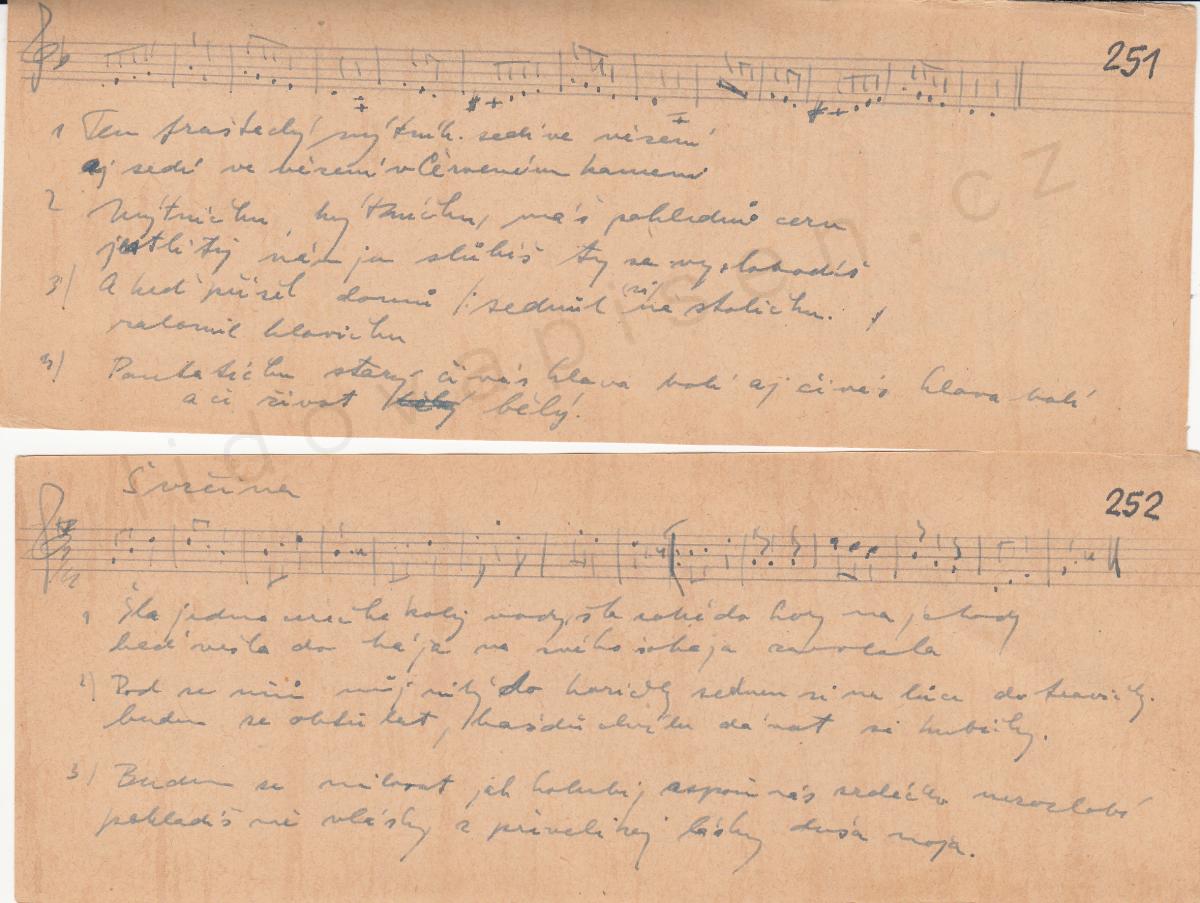 251
1 Ten fraštacký mýtník sedí ve vězení
aj sedí ve vězení v Červeném kameni
2 Mýtníčku, mýtníčku, máš pohlednú ceru
jestli ty nám ju slúbíš ty sa vyslobodíš
3) A keď přišél domů /: sednul si na stoličku.
zalomil hlavičku
3) Pantatíčku starý či vás hlava bolí aj či vás hlava bolí
a či život bělý.
252
Svrčina
1 Šla jedna kolij vody, šla do hory na jahody
keď vešla do hája na svého šohaja zavolala
2) Pod se mnú můj milý do horičky sednem si na lúce do travičky.
budem se objímat, každú chvílu dávat si hubičky.
3) Budem se milovat jak holubij, aspoň nás srdéčko nezozlobí
pohladíš mě vlásky z převelikej lásky duša moja.
lidovapisen.cz